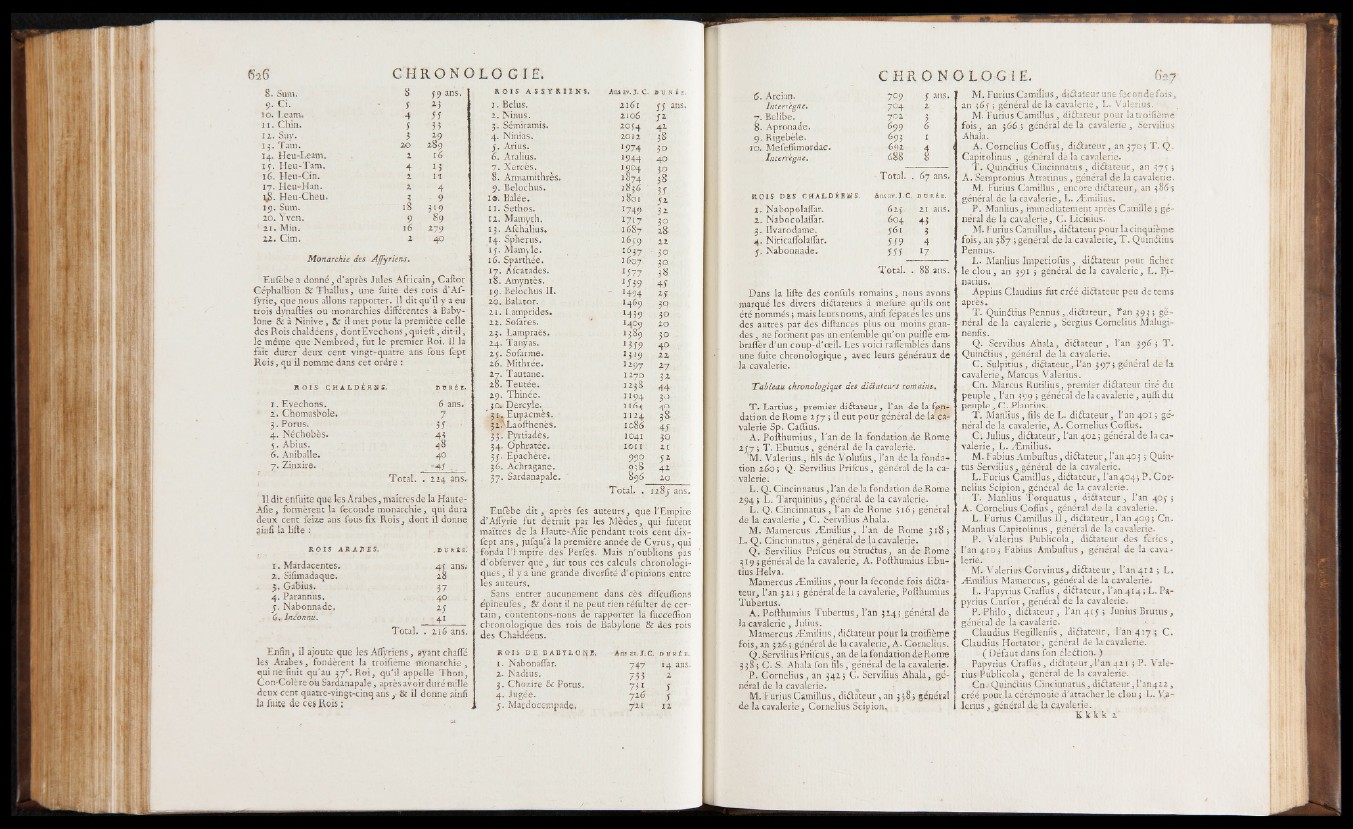 626 CHRONOLOGIE.
8. Sum. 8 59 ans.
9. Ci. 5 23
10. Leam. 4 55
11. Chin. 5 33
12. Suy. 3 29
13. Tam. 20 289
14. Heu-Leam. 2 16
15. Heu-Tam. 4 13
16. Heu-Cin. 2 11
17. Heu-Han. 2 4
18. Heu-Cheu. 3 9
19. Sum. 18 319
20. Yven. 9 89
21. Min. 16 279
22. Cim. 2 40
Monarchie des Aſſyriens.
Euſèbe a donné, d'après Jules Africain, Caſtor
Céphallion & Thallus, une ſuite des rois d'Aſ-
ſyrie, que nous allons rapporter. Il dit qu'il y a eu
trois dynaſties ou monarchies différentes à Baby-
lone & à Ninive, & il met pour la première celle
des Rois chaldéens, dont Evechons, qui eſt, dit-il,
le même que Nembrod, fut le premier Roi. Il la
fait durer deux cent vingt-quatre ans ſous ſept
Rois, qu'il nomme dans cet ordre :
ROIS CHALDÉENS. DURÉE.
1. Evechons. 6 ans.
2. Chomasbole. 7
3. Porus. 35
4. Néchobès. 43
5. Abius. 48
6. Aniballe. 40
7. Zinxire. 45
Total. . 224 ans.
Il dit enſuite que les Arabes, maîtres de la Haute-
Aſie, formèrent la ſeconde monarchie, qui dura
deux cent ſeize ans ſous ſix Rois, dont il donne
ainſi la liſte :
ROIS ARABES. DURÉE.
1. Mardacentes. 45 ans.
2. Siſimadaque. 28
3. Gabius. 37
4. Parannus. 40
5. Nabonnade. 25
6. Inconnu. 41
Total. . 216 ans.
Enfin, il ajoute que les Aſſyriens, ayant chaſſé
les Arabes, fondèrent la troiſième monarchie,
qui ne finit qu'au 37e. Roi, qu'il appelle Thon,
Con-Colère ou Sardanapale, après avoir duré mille
deux cent quatre-vingt-cinq ans, & il donne ainſi
la ſuite de ces Rois :
ROIS ASSYRIENS. Ans av. J. C. DURÉE.
1. Belus. 2161 55 ans.
2. Ninus. 2106 52
3. Sémiramis. 2054 42
4. Ninias. 2012 38
5. Arius. 1974 30
6. Aralius. 1944 40
7. Xercès. 1904 30
8. Armamithrès. 1874 38
9. Belochus. 1836 35
10. Balée. 1801 52
11. Sethos. 1749 32
12. Mamyth. 1717 30
13. Aſchalius. 1687 28
14. Spherus. 1659 22
15. Mamyle. 1637 30
16. Sparthée. 1607 30
17. Aſcatades. 1577 38
18. Amyntès. 1539 45
19. Belochus II. 1494 25
20. Balator. 1469 30
21. Lamprides. 1439 30
22. Sofarès. 1409 20
23. Lampraès. 1389 30
24. Tanyas. 1359 40
25. Sofarme. 1319 22
26. Mithrée. 1297 27
27. Tautane. 1270 32
28. Teutée. 1238 44
29. Thinée. 1194 30
30. Dercyle. 1164 40
31. Eupacmès. 1124 38
32. Laoſthenès. 1086 45
33. Pyrtiades. 1041 30
34. Ophratée. 1011 21
35. Epachère. 990 52
36. Achragane. 938 42
37. Sardanapale. 896 20
Total. . 1285 ans.
Euſèbe dit, après ſes auteurs, que l'Empire
d'Aſſyrie fut détruit par les Mèdes, qui furent
maîtres de la Haute-Aſie pendant trois cent dix-
ſept ans, juſqu'à la première année de Cyrus, qui
fonda l'Empire des Perſes. Mais n'oublions pas
d'obſerver que, ſur tous ces calculs chronologi-
ques, il y a une grande diverſité d'opinions entre
les auteurs.
Sans entrer aucunement dans ces diſcuſſions
épineuſes, & dont il ne peut rien réſulter de cer-
tain, contentons-nous de rapporter la ſucceſſion
chronologique des rois de Babylone & des rois
des Chaldéens.
ROIS DE BABYLONE. Ans av. J.C. DURÉE.
1. Nabonaſſar. 747 14 ans.
2. Nadius. 733 2
3. Chozire & Porus. 731 5
4. Jugée. 726 5
5. Mardocempade, 721 12
CHRONOLOGIE. 627
6. Arcian. 709 5 ans.
Interrègne. 704 2
7. Belibe. 702 3
8. Apronade. 699 6
9. Rigebèle. 693 1
10. Meſeſſimordac. 692 4
Interrègne. 688 8
Total. . 67 ans.
ROIS DES CHALDÉENS. Ans av. J.C. DURÉE.
1. Nabopolaſſar. 625 21 ans.
2. Nabocolaſſar. 604 43
3. Ilvarodame. 561 3
4. Niricaſſolaſſar. 559 4
5. Nabonnade. 555 17
Total. . 88 ans.
Dans la liſte des conſuls romains, nous avons
marqué les divers dictateurs à meſure qu'ils ont
été nommés ; mais leurs noms, ainſi ſéparés les uns
des autres par des diſtances plus ou moins gran-
des, ne forment pas un enſemble qu'on puiſſe em-
braſſer d'un coup-d'œil. Les voici raſſemblés dans
une ſuite chronologique, avec leurs généraux de
la cavalerie.
Tableau chronologique des dictateurs romains.
T. Lartius, premier dictateur, l'an de la fon-
dation de Rome 257 ; il eut pour général de la ca-
valerie Sp. Caſſius.
A. Poſthumius, l'an de la fondation de Rome
257 ; T. Ebutius, général de la cavalerie.
M. Valerius, fils de Voluſus, l'an de la fonda-
tion 260 ; Q. Servilius Priſcus, général de la ca-
valerie.
L. Q. Cincinnatus, l'an de la fondation de Rome
294 ; L. Tarquinius, général de la cavalerie.
L. Q. Cincinnatus, l'an de Rome 316 ; général
de la cavalerie, C. Servilius Ahala.
M. Mamercus Æmilius, l'an de Rome 318 ;
L. Q. Cincinnatus, général de la cavalerie.
Q. Servilius Priſcus ou Structus, an de Rome
319 ; général de la cavalerie, A. Poſthumius Ebu-
tius Helva.
Mamercus Æmilius, pour la ſeconde fois dicta-
teur, l'an 321 ; général de la cavalerie, Poſthumius
Tubertus.
A. Poſthumius Tubertus, l'an 324 ; général de
la cavalerie, Julius.
Mamercus Æmilius, dictateur pour la troiſième
fois, an 326 ; général de la cavalerie, A. Cornelius.
Q. Servilius Priſcus, an de la fondation de Rome
338 ; C. S. Ahala ſon fils, général de la cavalerie.
P. Cornelius, an 342 ; C. Servilius Ahala, gé-
néral de la cavalerie.
M. Furius Camillus, dictateur, an 358 ; général
de la cavalerie, Cornelius Scipion.
M. Furius Camillus, dictateur une ſeconde fois,
an 365 ; général de la cavalerie, L. Valerius.
M. Furius Camillus, dictateur pour la troiſième
fois, an 366 ; général de la cavalerie, Servilius
Ahala.
A. Cornelius Coſſus, dictateur, an 370 ; T. Q.
Capitolinus, général de la cavalerie.
T. Quinctius Cincinnatus, dictateur, an 375 ;
A. Sempronius Atratinus, général de la cavalerie.
M. Furius Camillus, encore dictateur, an 386 ;
général de la cavalerie, L. Æmilius.
P. Manlius, immédiatement après Camille ; gé-
néral de la cavalerie, C. Licinius.
M. Furius Camillus, dictateur pour la cinquième
fois, an 387 ; général de la cavalerie, T. Quinctius
Pennus.
L. Manlius Impetioſus, dictateur pour ficher
le clou, an 391 ; général de la cavalerie, L. Pi-
narius.
Appius Claudius fut créé dictateur peu de tems
après.
T. Quinctius Pennus, dictateur, l'an 393 ; gé-
néral de la cavalerie, Sergius Cornelius Malugi-
nenſis.
Q. Servilius Ahala, dictateur, l'an 396 ; T.
Quinctius, général de la cavalerie.
C. Sulpitius, dictateur, l'an 397 ; général de la
cavalerie, Marcus Valerius.
Cn. Marcus Rutilius, premier dictateur tiré du
peuple, l'an 399 ; général de la cavalerie, auſſi du
peuple, C. Plautius.
T. Manlius, fils de L. dictateur, l'an 401 ; gé-
néral de la cavalerie, A. Cornelius Coſſus.
C. Julius, dictateur, l'an 402 ; général de la ca-
valerie, L. Æmilius.
M. Fabius Ambuſtus, dictateur, l'an 403 ; Quin-
tus Servilius, général de la cavalerie.
L. Furius Camillus, dictateur, l'an 404 ; P. Cor-
nelius Scipion, général de la cavalerie.
T. Manlius Torquatus, dictateur, l'an 405 ;
A. Cornelius Coſſus, général de la cavalerie.
L. Furius Camillus II, dictateur, l'an 409 ; Cn.
Manlius Capitolinus, général de la cavalerie.
P. Valerius Publicola, dictateur des féries,
l'an 410 ; Fabius Ambuſtus, général de la cava-
lerie.
M. Valerius Corvinus, dictateur, l'an 412 ; L.
Æmilius Mamercus, général de la cavalerie.
L. Papyrius Craſſus, dictateur, l'an 414 ; L. Pa-
pyrius Curſor, général de la cavalerie.
P. Philo, dictateur, l'an 415 ; Junius Brutus,
général de la cavalerie.
Claudius Regillenſis, dictateur, l'an 417 ; C.
Claudius Hortator, général de la cavalerie.
( Défaut dans ſon élection. )
Papyrius Craſſus, dictateur, l'an 421 ; P. Vale-
rius Publicola, général de la cavalerie.
Cn. Quinctius Cincinnatus, dictateur, l'an 422,
créé pour la cérémonie d'attacher le clou ; L. Va-
lerius, général de la cavalerie.
Kkkk 2